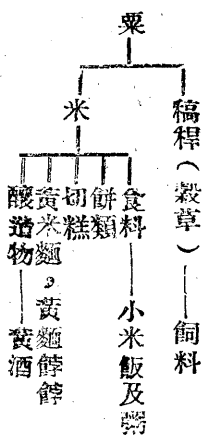 粟
稿稈(穀草)——飼料
米
食料——小米飯及粥
餅類
切糕
黃米麵，黃麵餑餑
釀造物——黃酒